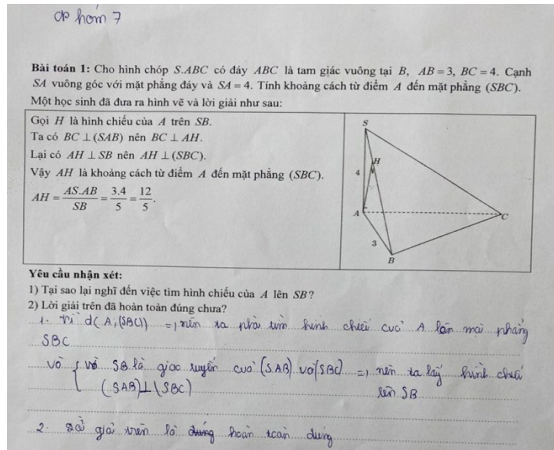 nhóm 7
Bài toán 1: Cho hình chóp S.ABC có đáy ABC là tam giác vuông tại B, AB = 3, BC = 4. Cạnh
SA vuông góc với mặt phẳng đáy và SA = 4. Tính khoảng cách từ điểm A đến mặt phẳng (SBC).
Một học sinh đã đưa ra hình vẽ và lời giải như sau:
Gọi H là hình chiếu của A trên SB.
Ta có BC ⊥ (SAB) nên BC ⊥ AH.
Lại có AH ⊥ SB nên AH ⊥ (SBC).
Vậy AH là khoảng cách từ điểm A đến mặt phẳng (SBC).
AH = AS.AB/SB = 3.4/5 = 12/5.
S
H
4
A
C
3
B
Yêu cầu nhận xét:
1) Tại sao lại nghĩ đến việc tìm hình chiếu của A lên SB?
2) Lời giải trên đã hoàn toàn đúng chưa?
1. Vì d(A,(SBC)) => nên ta phải tìm hình chiếu của A lên mặt phẳng
SBC
và { vì SB là giao tuyến của (SAB) và (SBC) => nên ta lấy hình chiếu
(SAB) ⊥ (SBC) lên SB
2. Bài giải trên là đúng hoàn toàn đúng